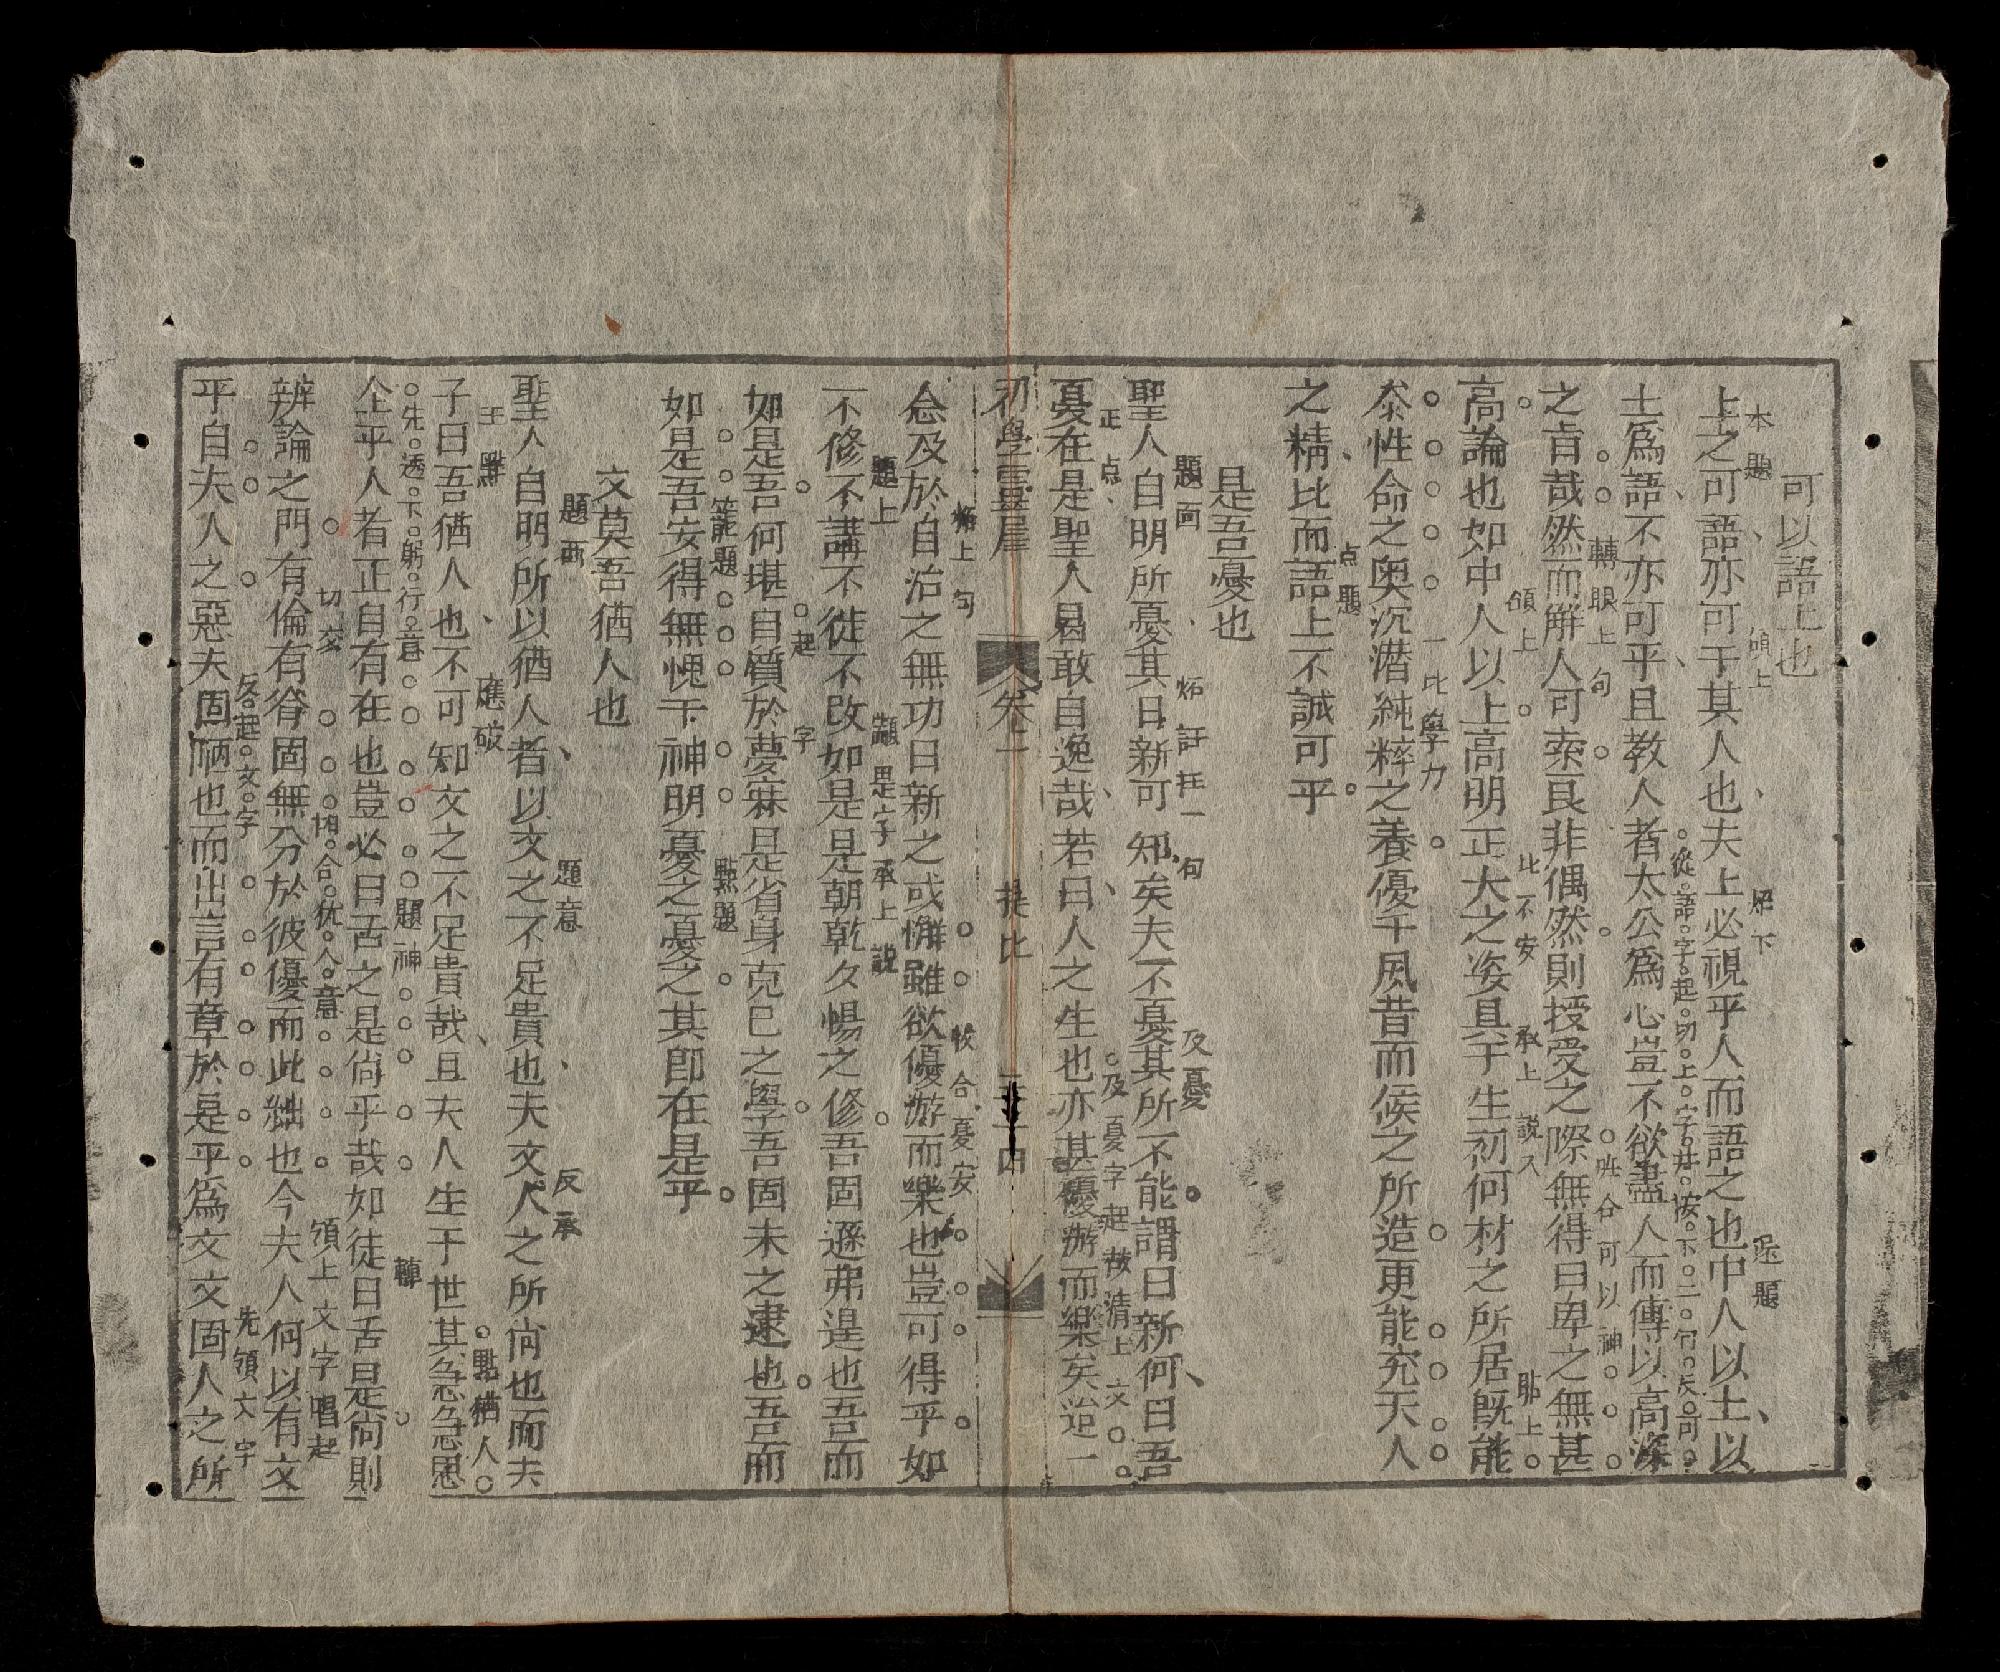 可以語上也
上之可語亦可于其人也夫上必視乎人而語之也中人以上以
本題
領上
照下
足題
士爲語不亦可乎且教人者太公爲心豈不欲盡人而傳以高深
從語字起切上字
之旨哉然而解人可索艮非偶然則授受之際無得曰卑之無甚
轉眼上句
合可以神
高論也如中人以上高明正大之姿具于生初何材之所居既能
領上
比不安
承上說入
貼上
叅性命之奥沉潜純粹之養優于夙昔而候之所造更能究天人
一比學力
之精比而語上不誠可乎
点題
是吾憂也
聖人自明所憂其日新可知矣夫不憂其所不能謂日新何曰吾
題面
句
反憂
憂在是聖人曷敢自逸哉若曰人之生也亦甚優游而樂矣迨一
正点
及憂字起
清上文
初學靈犀
卷一
提比
四
念及於自治之無功日新之或懈雖欲優游而樂也豈可得乎如
上句
合憂安
不修不講不徙不改如是是朝乾夕惕之修吾固遜弗遑也吾而
題上
是字承上說
如是吾何堪自質於夢寐是省身克已之學吾固未之逮也吾而
起
字
如是吾安得無愧于神明憂之憂之其卽在是乎
籠題
點題
文莫吾猶人也
聖人自明所以猶人者以文之不足貴也夫文人之所尙也而夫
題面
題意
反承
子曰吾猶人也不可知文之不足貴哉且夫人生于世其急急思
應破
點猶人
仝乎人者正自有在也豈必曰舌之是尙乎哉如徒曰舌是尙則
先透下躬行意
題神
轉
辨論之門有倫有脊固無分於彼優而此絀也今夫人何以有文
切文
合猶人意
領上文字唱起
乎自夫人之惡夫固陋也而出言有章於是乎爲文文固人之所
起文字
先領文字